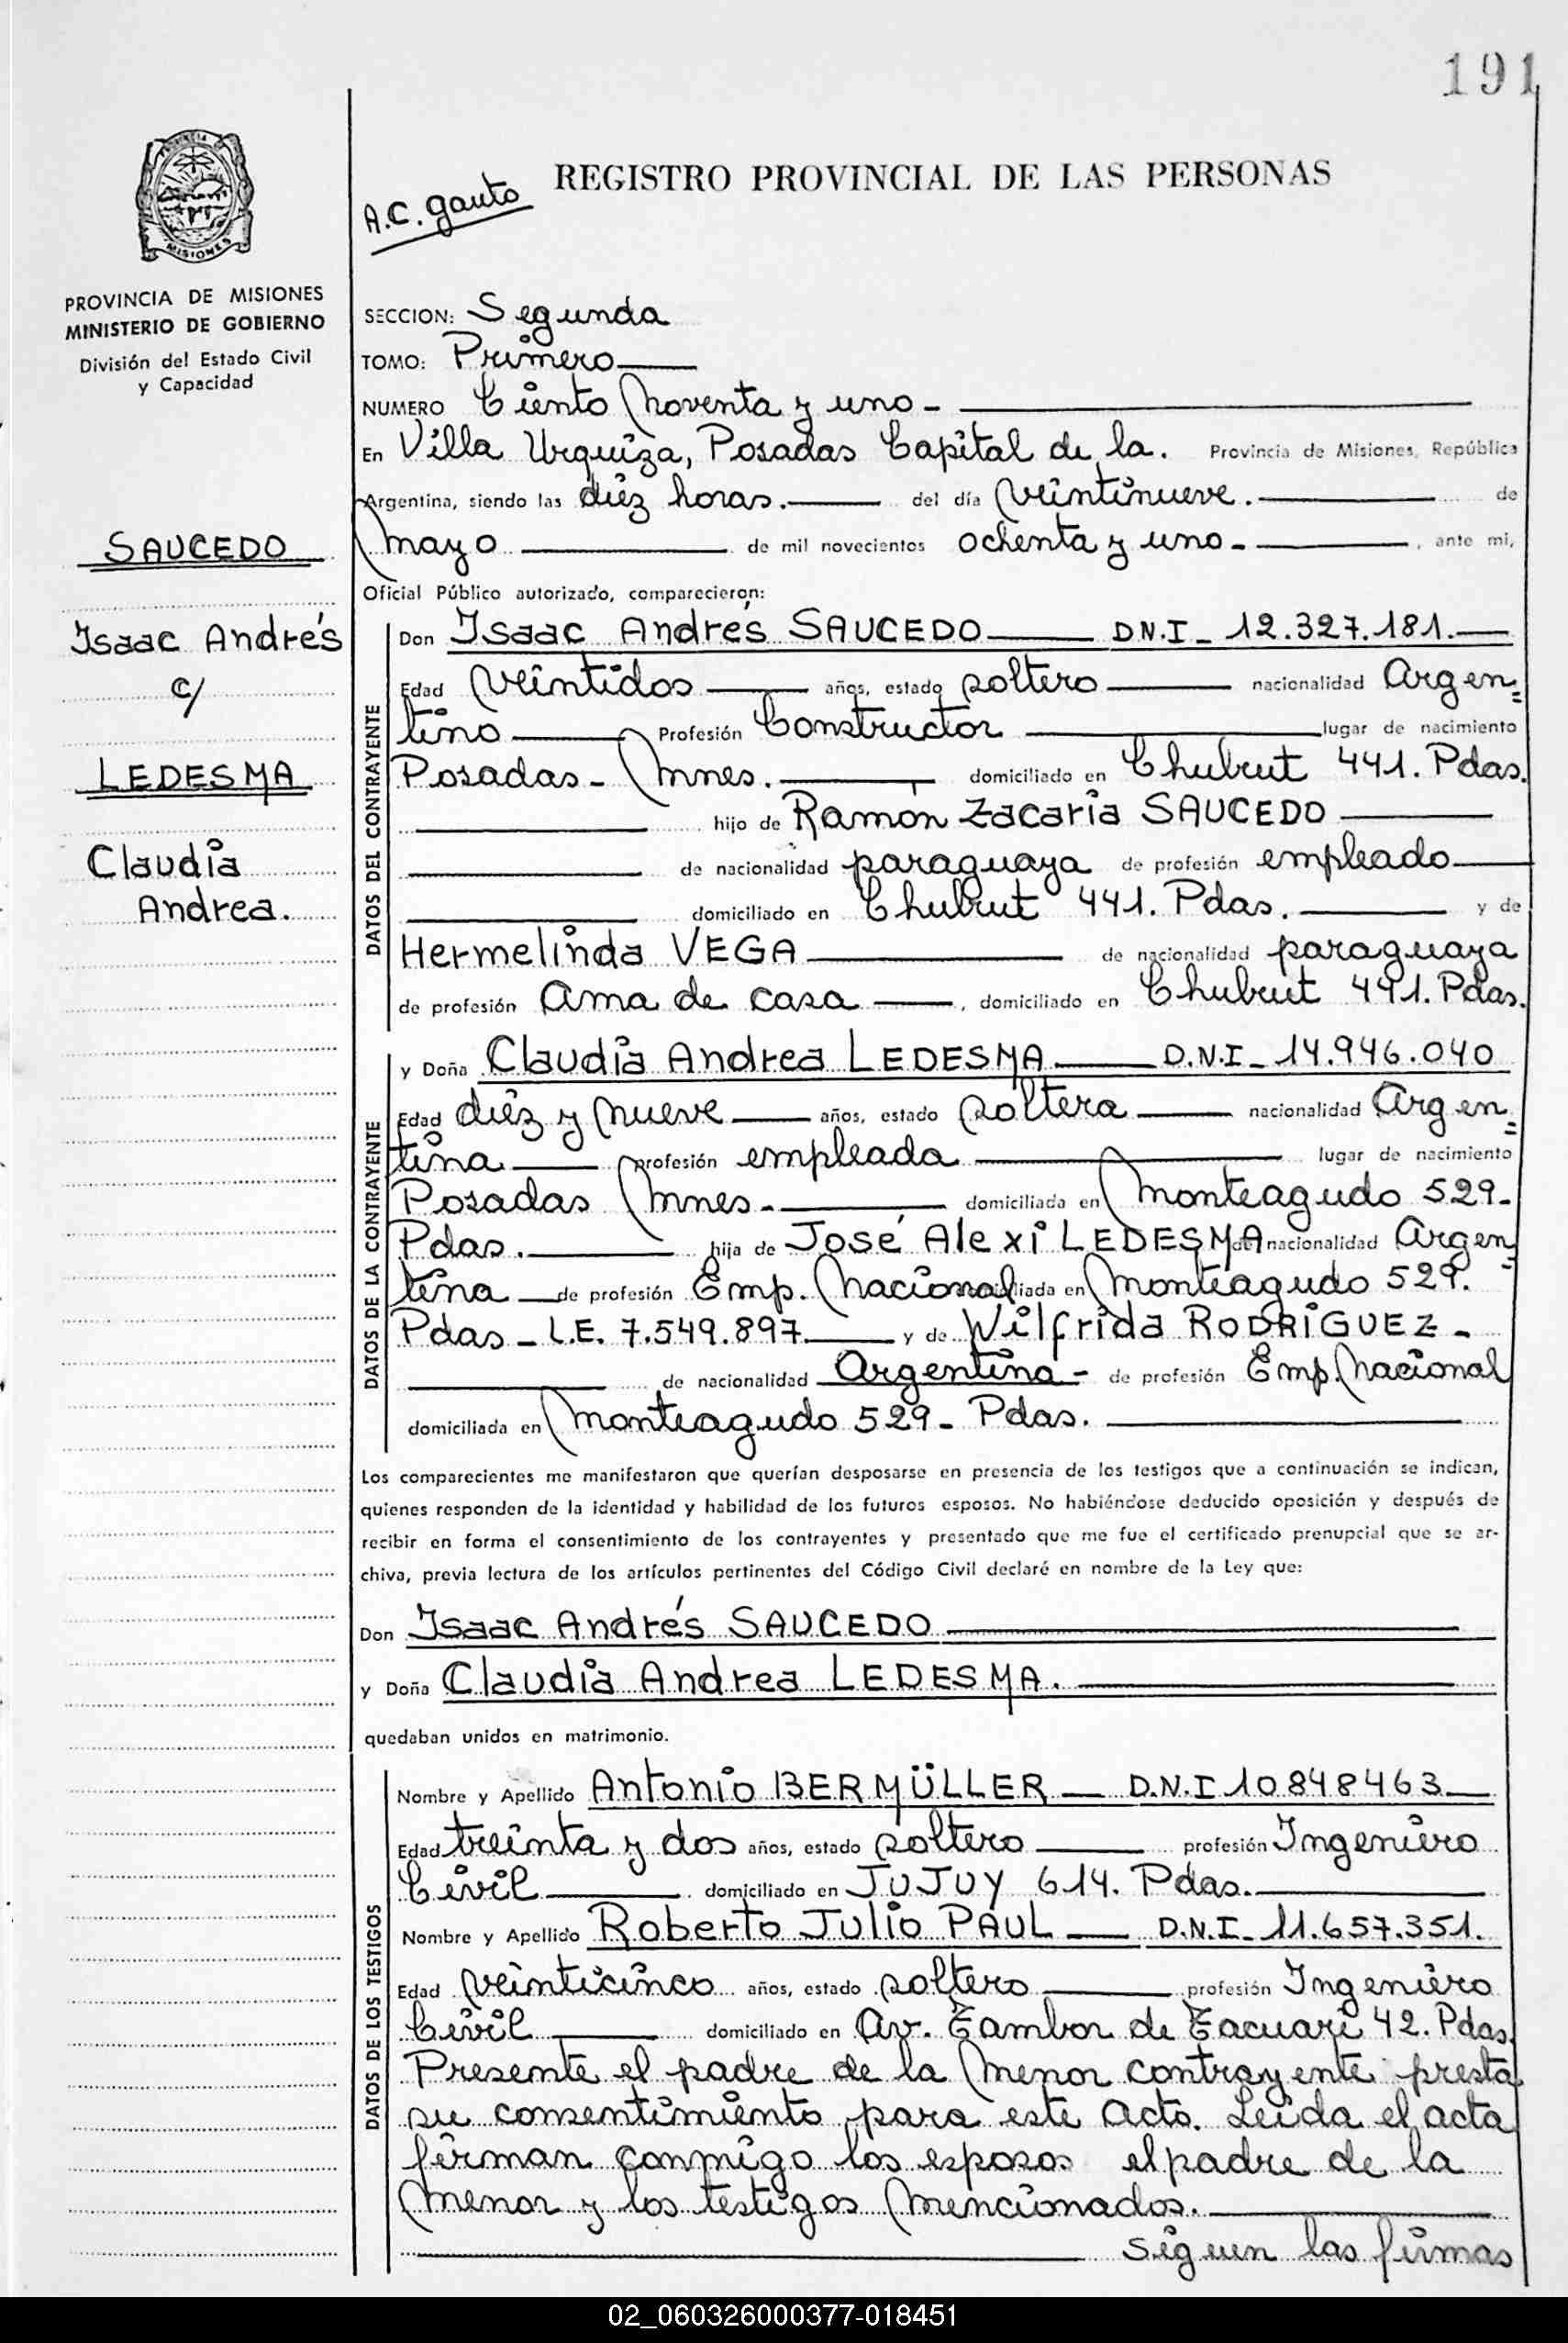 191
PROVINCIA DE
MISIONES
REGISTRO PROVINCIAL DE LAS PERSONAS
A.C. Gauto
PROVINCIA DE MISIONES
MINISTERIO DE GOBIERNO
División del Estado Civil
y Capacidad
SAUCEDO
Isaac Andrés
c/
LEDESMA
Claudia
Andrea.
SECCION: Segunda
TOMO: Primero
NUMERO Ciento Noventa y uno -
En Villa Urquiza, Posadas Capital de la. Provincia de Misiones, República
Argentina, siendo las diéz horas. del día Veintinueve. de
Mayo de mil novecientos ochenta y uno - , ante mi,
Oficial Público autorizado, comparecieron:
DATOS DEL CONTRAYENTE
Don Isaac Andrés SAUCEDO D.N.I - 12.327.181.
Edad Veintidos años, estado soltero nacionalidad Argen=
tino Profesión Constructor lugar de nacimiento
Posadas - Mnes. domiciliado en Chubut 441. Pdas.
hijo de Ramón Zacaria SAUCEDO
de nacionalidad paraguaya de profesión empleado
domiciliado en Chubut 441. Pdas. y de
Hermelinda VEGA de nacionalidad paraguaya
de profesión Ama de casa , domiciliado en Chubut 441. Pdas.
DATOS DE LA CONTRAYENTE
y Doña Claudia Andrea LEDESMA D.N.I - 14.946.040
Edad diéz y Nueve años, estado soltera nacionalidad Argen=
tina profesión empleada lugar de nacimiento
Posadas Mnes - domiciliada en Monteagudo 529 -
Pdas. hija de José Alexi LEDESMA de nacionalidad Argen=
tina de profesión Emp. Nacional domiciliada en Monteagudo 529.
Pdas - L.E. 7.549.897 y de Wilfrida RODRIGUEZ -
de nacionalidad Argentina - de profesión Emp. Nacional
domiciliada en Monteagudo 529 - Pdas.
Los comparecientes me manifestaron que querían desposarse en presencia de los testigos que a continuación se indican,
quienes responden de la identidad y habilidad de los futuros esposos. No habiéndose deducido oposición y después de
recibir en forma el consentimiento de los contrayentes y presentado que me fue el certificado prenupcial que se ar-
chiva, previa lectura de los artículos pertinentes del Código Civil declaré en nombre de la Ley que:
Don Isaac Andrés SAUCEDO
y Doña Claudia Andrea LEDESMA.
quedaban unidos en matrimonio.
DATOS DE LOS TESTIGOS
Nombre y Apellido Antonio BERMÜLLER D.N.I 10848463
Edad treinta y dos años, estado soltero profesión Ingeniero
Civil domiciliado en JUJUY 614. Pdas.
Nombre y Apellido Roberto Julio PAUL D.N.I - 11.657.351.
Edad Veinticinco años, estado soltero profesión Ingeniero
Civil domiciliado en Av. Tambor de Tacuari 42. Pdas.
Presente el padre de la Menor contrayente presta
su consentimiento para este acto. Leida el acta
firman conmigo los esposos el padre de la
Menor y los testigos Mencionados.
siguen las firmas
02_060326000377-018451